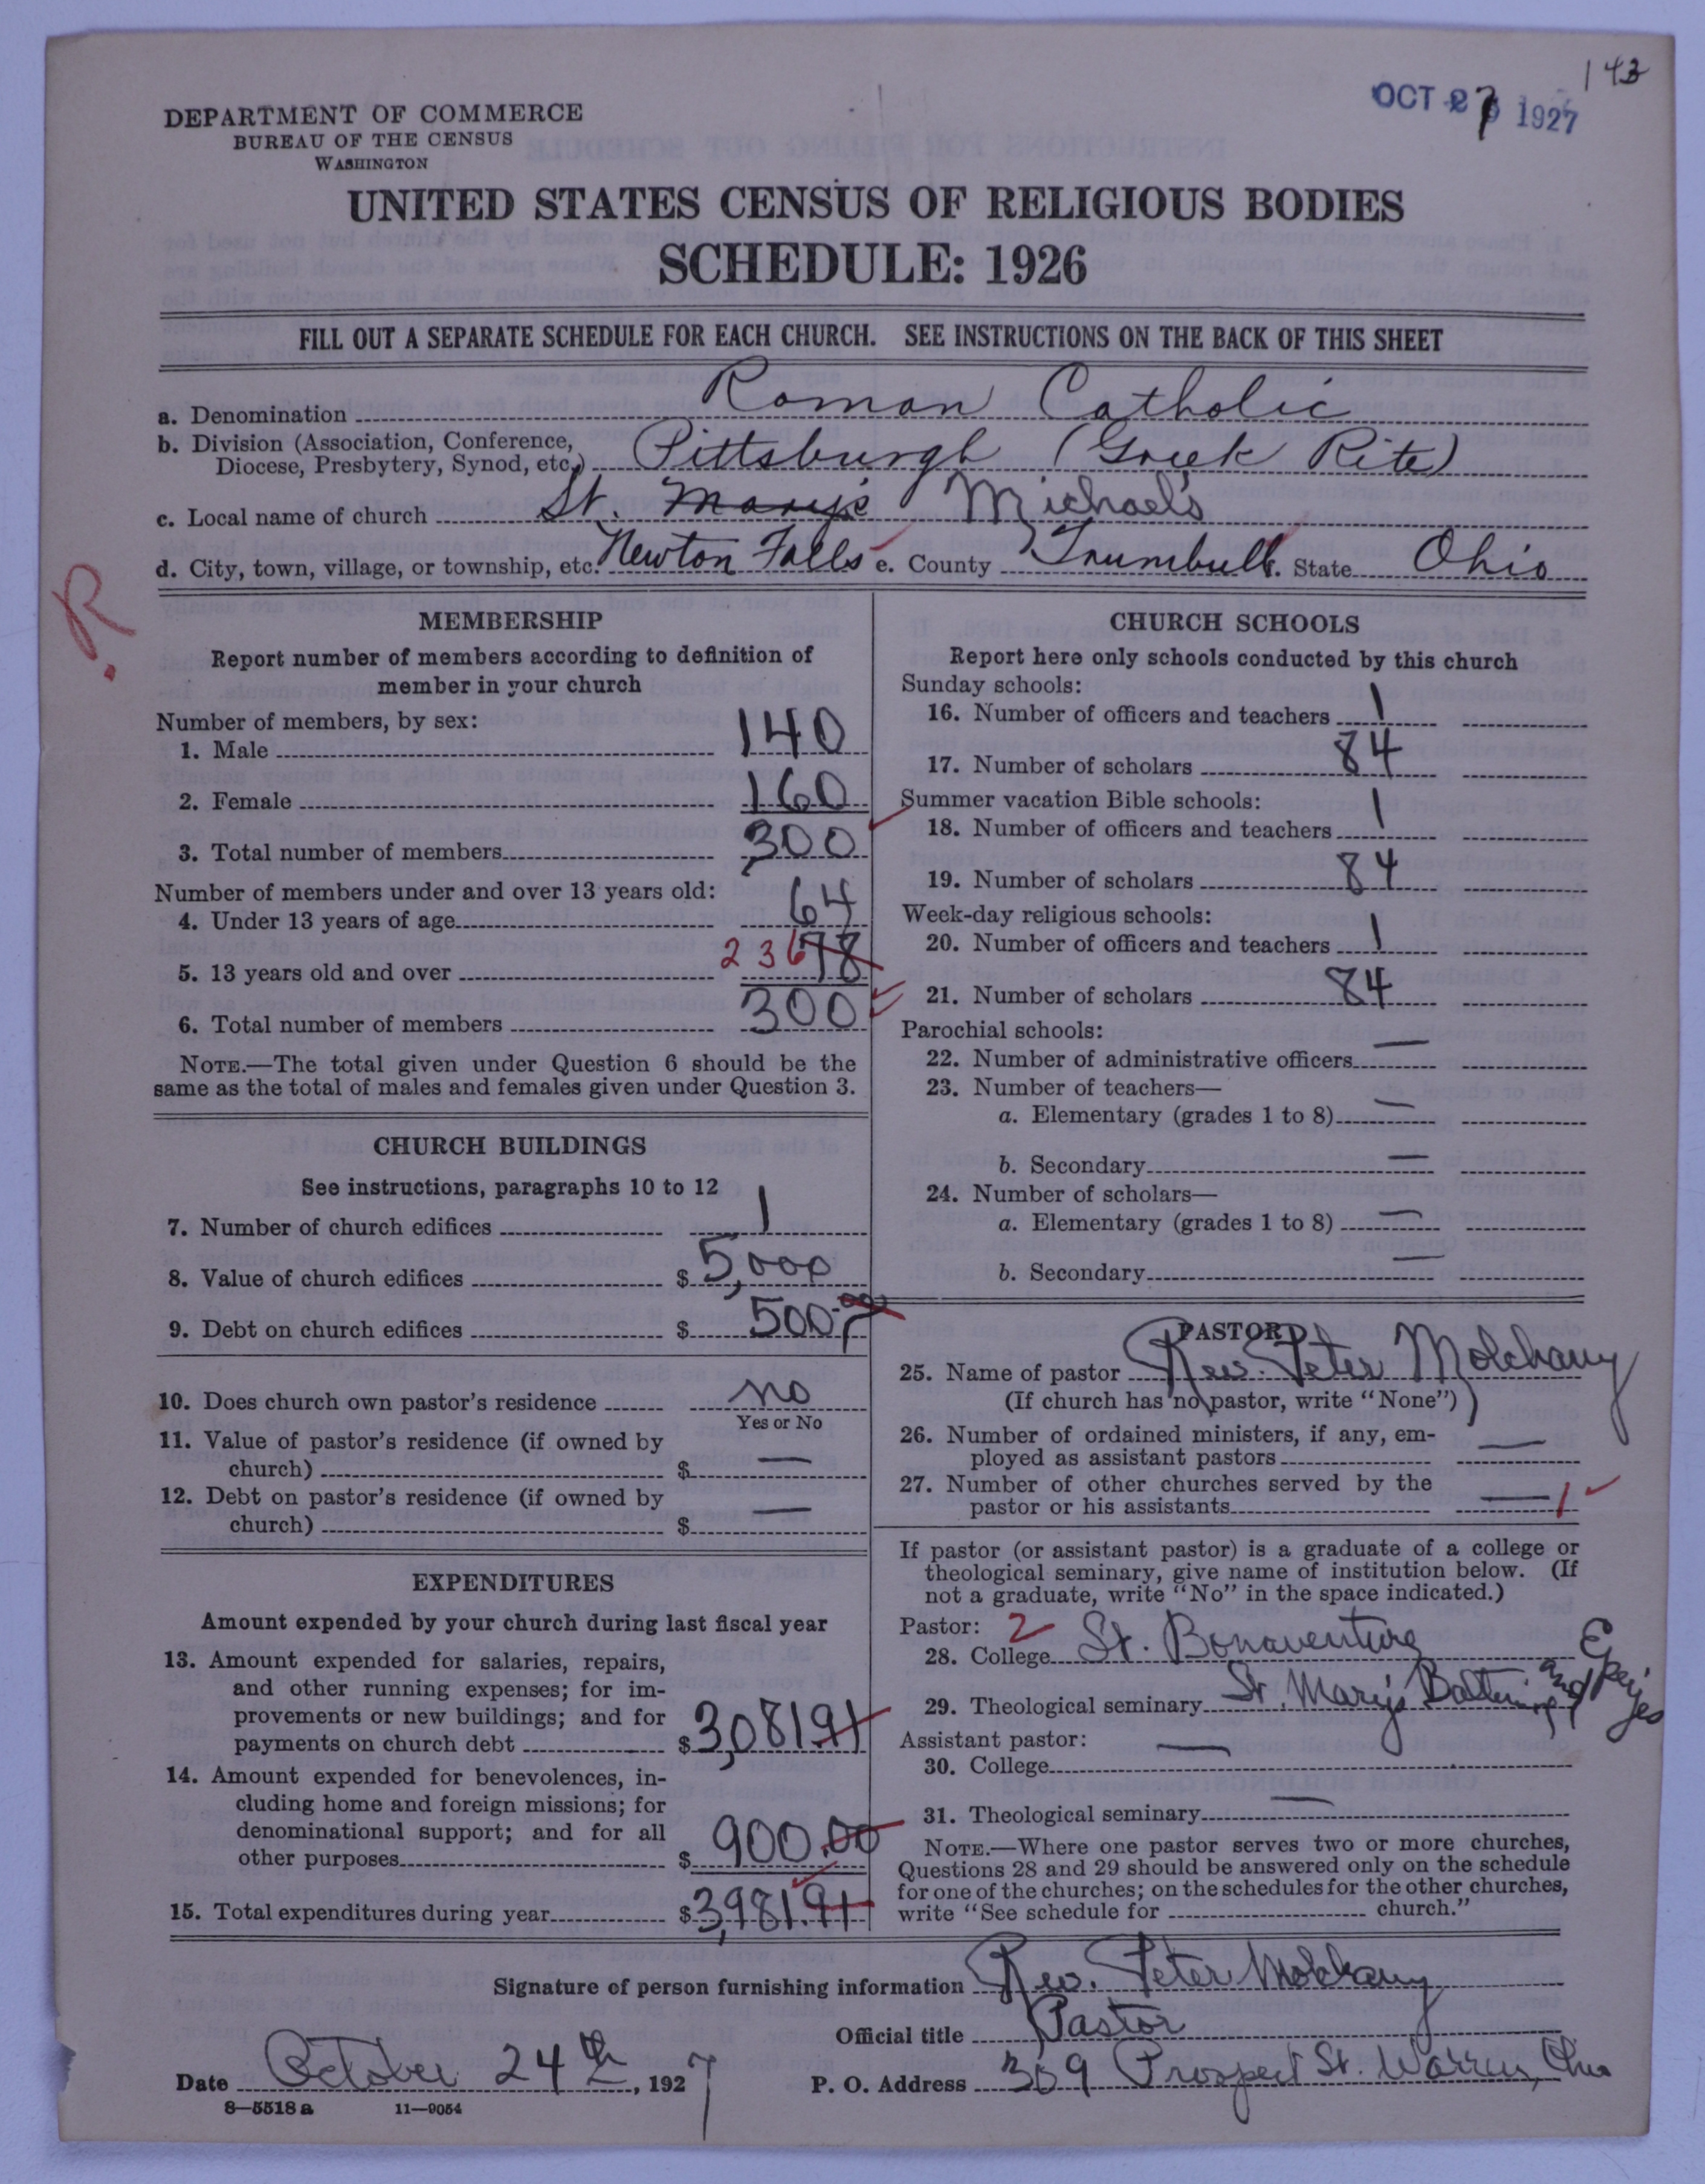 143
OCT 27 1927
DEPARTMENT OF COMMERCE
BUREAU OF THE CENSUS
WASHINGTON
UNITED STATES CENSUS OF RELIGIOUS BODIES
SCHEDULE: 1926
FILL OUT A SEPARATE SCHEDULE FOR EACH CHURCH. SEE INSTRUCTIONS ON THE BACK OF THIS SHEET
a. Denomination Roman Catholic
b. Division (Association, Conference,
Diocese, Presbytery, Synod, etc.) Pittsburgh (Greek Rite)
c. Local name of church St. Mary's Michael's
d. City, town, village, or township, etc. Newton Falls e. County Trumbull f. State Ohio
R.
MEMBERSHIP
Report number of members according to definition of
member in your church
Number of members, by sex:
1. Male 140
2. Female 160
3. Total number of members 300
Number of members under and over 13 years old:
4. Under 13 years of age 64
5. 13 years old and over 236 78
6. Total number of members 300
NOTE.—The total given under Question 6 should be the
same as the total of males and females given under Question 3.
CHURCH BUILDINGS
See instructions, paragraphs 10 to 12
7. Number of church edifices 1
8. Value of church edifices $ 5,000
9. Debt on church edifices $ 500.00
10. Does church own pastor's residence no
Yes or No
11. Value of pastor's residence (if owned by
church) $ —
12. Debt on pastor's residence (if owned by
church) $ —
EXPENDITURES
Amount expended by your church during last fiscal year
13. Amount expended for salaries, repairs,
and other running expenses; for im-
provements or new buildings; and for
payments on church debt $ 3,081.91
14. Amount expended for benevolences, in-
cluding home and foreign missions; for
denominational support; and for all
other purposes $ 900.00
15. Total expenditures during year $ 3,981.91
CHURCH SCHOOLS
Report here only schools conducted by this church
Sunday schools:
16. Number of officers and teachers 1
17. Number of scholars 84
Summer vacation Bible schools:
18. Number of officers and teachers 1
19. Number of scholars 84
Week-day religious schools:
20. Number of officers and teachers 1
21. Number of scholars 84
Parochial schools:
22. Number of administrative officers —
23. Number of teachers—
a. Elementary (grades 1 to 8) —
b. Secondary —
24. Number of scholars—
a. Elementary (grades 1 to 8) —
b. Secondary —
PASTOR
25. Name of pastor Rev. Peter Molchany
(If church has no pastor, write "None")
26. Number of ordained ministers, if any, em-
ployed as assistant pastors —
27. Number of other churches served by the
pastor or his assistants — 1
If pastor (or assistant pastor) is a graduate of a college or
theological seminary, give name of institution below. (If
not a graduate, write "No" in the space indicated.)
Pastor: 2
28. College St. Bonaventure
29. Theological seminary St. Mary's Baltimore and Eperjes
Assistant pastor:
30. College —
31. Theological seminary —
NOTE.—Where one pastor serves two or more churches,
Questions 28 and 29 should be answered only on the schedule
for one of the churches; on the schedules for the other churches,
write "See schedule for church."
Signature of person furnishing information Rev. Peter Molchany
Official title Pastor
Date October 24th, 1927 P. O. Address 309 Prospect St. Warren, Ohio
8—5518a 11—9054